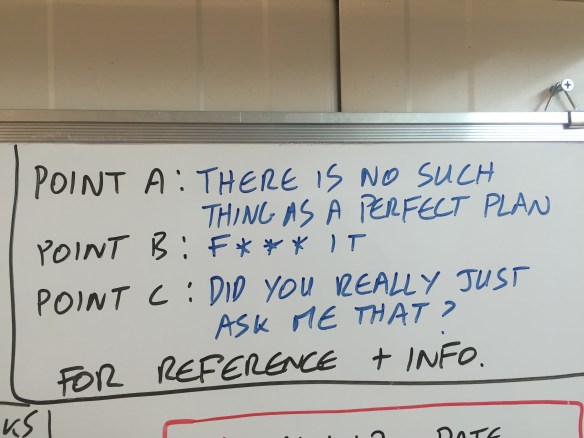 POINT A: THERE IS NO SUCH
THING AS A PERFECT PLAN
POINT B: F*** IT
POINT C: DID YOU REALLY JUST
ASK ME THAT?
FOR REFERENCE + INFO.
DATE